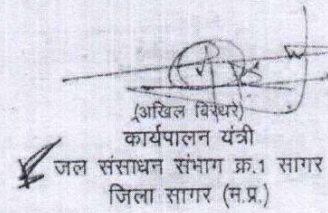 (अखिल बिरथरे)
कार्यपालन यंत्री
जल संसाधन संभाग क्र.1 सागर
जिला सागर (म.प्र.)